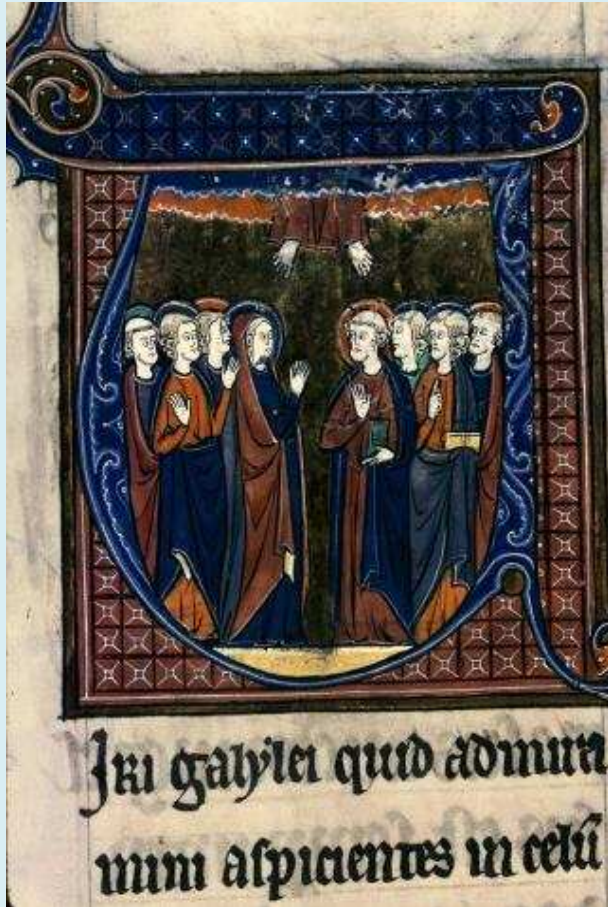 Iri galylei quid admira
mini aspicientes in celū